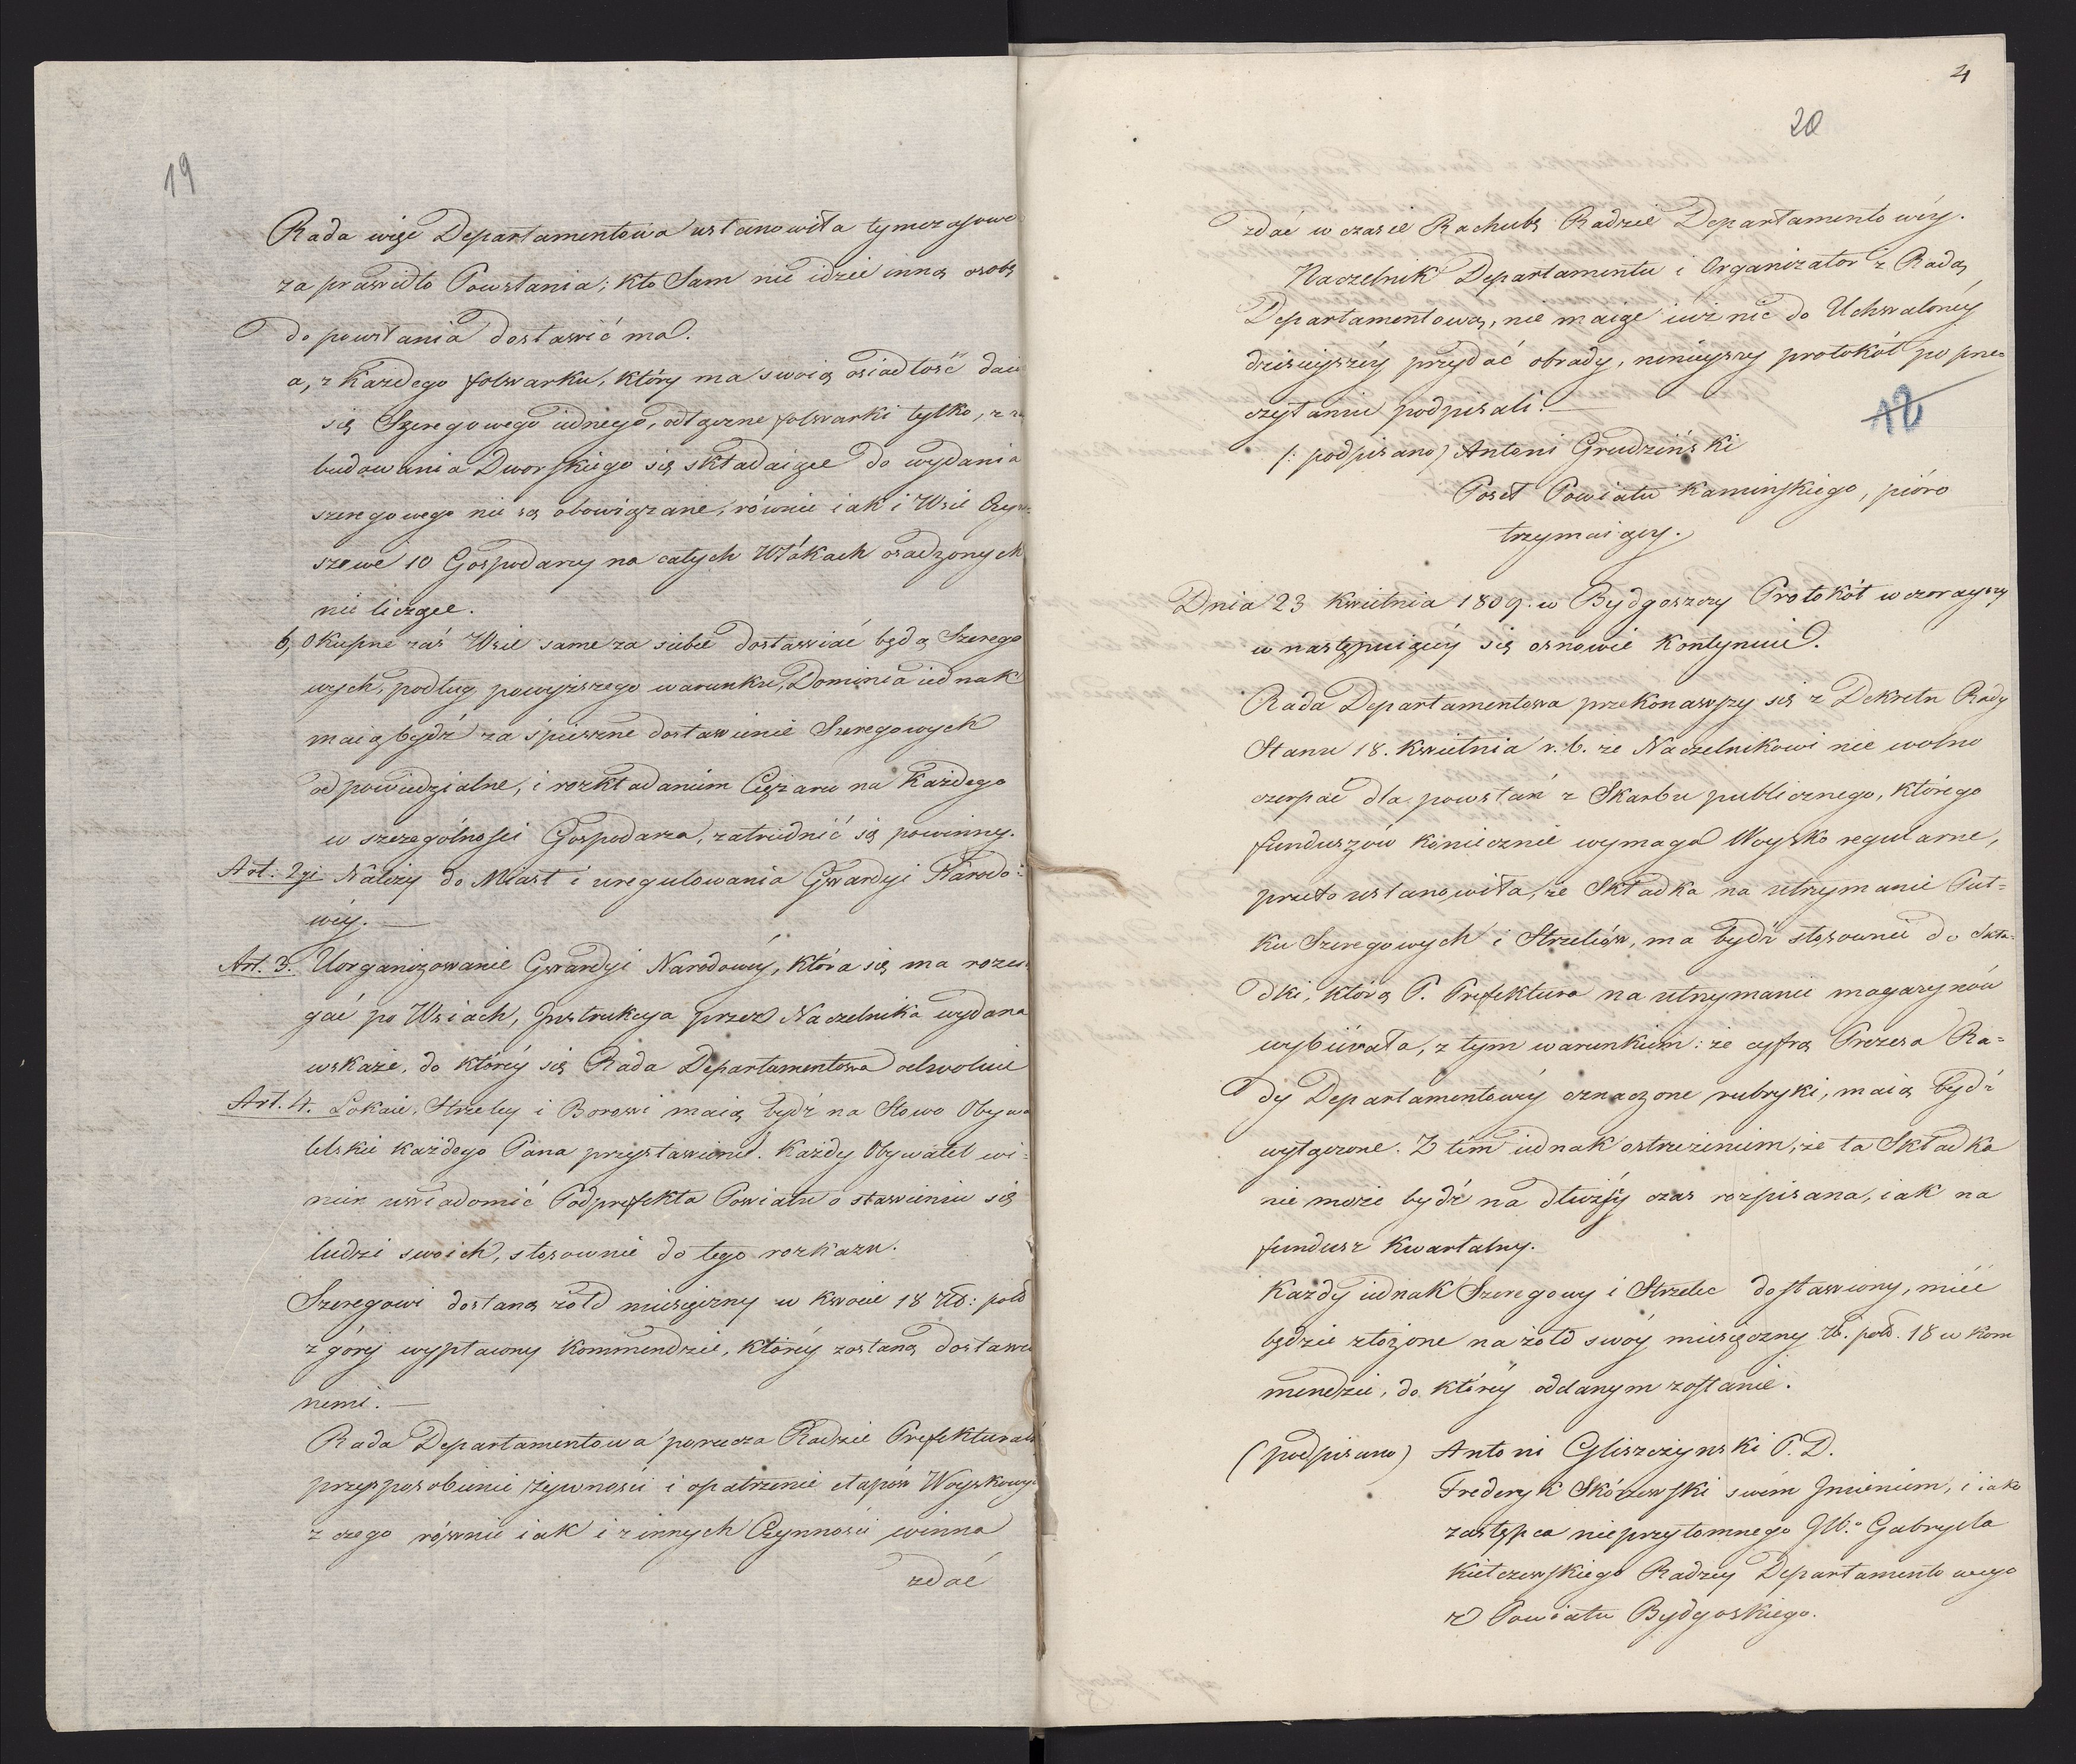 19
Rada więc Departamentowa ustanowiła tymczasowe
za prawidło Powstania; kto Sam nie idzie inną osobę
do powstania dostawić ma.
a, z Każdego folwarku, który ma swoią osiadłość daie
się Szeregowego iednego, odłączne folwarki tylko, z za
budowania Dworskiego się składaiące do wydania
szeregowego nie są obowiązane, równie iak i Wsie Czyn-
szowe 10 Gospodarzy na całych Włókach osadzonych
nie liczące.
b, Okupne zaś Wsie same za siebie dostawiać będą Szerego
wych, podług powyższego warunku, Dominia iednak
maią bydź za śpieszne dostawienie Szeregowych
odpowiedzialne, i rozkładaniem Ciężaru na Każdego
w szczególności Gospodarza, zatrudnić się powinny.
Art. 2gi Należy do Miast i uregulowania Gwardyi Narodo=
wéy. —
Art. 3. Uorganizowanie Gwardyi Narodowéy, która się ma rozcią
gać po Wsiach, Instrukcya przez Naczelnika wydana
wskaże, do któréy się Rada Departamentowa odwołuie
Art. 4. Lokaie, Strzelcy i Borowi maią bydź na Słowo Obywa
telskie każdego Pana przystawione. Każdy Obywatel wi=
nien uwiadomić Podprefekta Powiatu o stawieniu się
ludzi swoich, stosownie do tego rozkazu.
Szeregowi dostaną żołd miesięczny w kwocie 18 Złł: pols
z góry wypłacony kommendzie, któréy zostaną dostawio
nemi. —
Rada Departamentowa porucza Radzie Prefekturalné
przysposobienie żywności i opatrzenie etapów Woyskowy
z czego równie iak i z innych Czynności winna
zdać
4
20
zdać w czasie Rachubę Radzie Departamentowéy.
Naczelnik Departamentu i Organizator z Radą
Departamentową, nie maiąc iuż nic do Uchwalonéy
dzisieyszéy przydać obrady, ninieyszy protokół po prze=
czytaniu podpisali. —
12
/: podpisano) Antoni Grudziński
Poseł Powiatu Kaminskiego, pióro
trzymaiący.
Dnia 23 Kwietnia 1809. w Bydgoszczy Protokół wczorayszy
w następuiącéy się osnowie Kontynuie.
Rada Departamentowa przekonawszy się z Dekretu Rady
Stanu 18. Kwietnia r. b. że Naczelnikowi nie wolno
czerpać dla powstań z Skarbu publicznego, którego
funduszów koniecznie wymaga Woysko regularne,
przeto ustanowiła, że Składka na utrzymanie Puł=
ku Szeregowych i Strzelców, ma bydź stosownie do Skła=
dki, którą P. Prefektura na utrzymanie magazynów
wybiérała, z tym warunkiem: że cyfrą Prezesa Ra=
dy Departamentowéy oznaczone rubryki, maią bydź
wyłączone. Z tém iednak ostrzeżeniem, że ta Składka
nie może bydź na dłuższy czas rozpisana, iak na
fundusz Kwartalny.
Każdy iednak Szeregowy i Strzelec dostawiony, mieć
będzie złożone na żołd swóy miesięczny Zł. pols. 18 w Kom
mendzie, do któréy oddanym zostanie.
(podpisano) Antoni Gliszczyński P. D.
Frederyk Skórzewski swém Jmieniem, i iako
zastępca nieprzytomnego JW.o Gabryela
Kiełczewskiego Radzcy Departamentowego
z Powiatu Bydgoskiego.